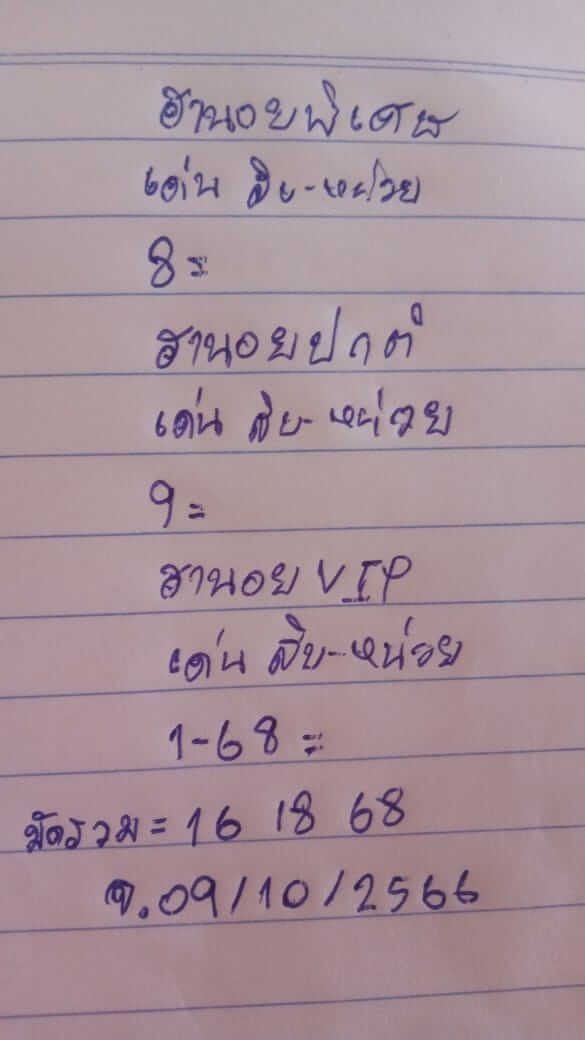 ฮานอยพิเศษ
เด่น สิบ-หน่วย
8=
ฮานอยปกติ
เด่น สิบ-หน่วย
9=
ฮานอย VIP
เด่น สิบ-หน่วย
1-68=
มัดรวม=16 18 68
จ.09/10/2566